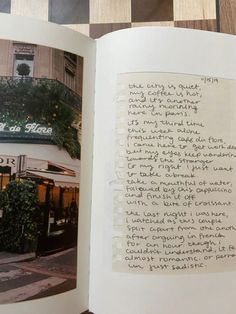 é de Flore
OR
the city is quiet,
my coffee is hot,
and it's another
rainy morning
here in paris.
it's my third time
this week alone
frequenting cafe de flore.
i came here to get work done
but my eyes keep wandering
towards the stranger
to my right. i just want
to take a break.
take a mouthful of water,
followed by this cappuccino
and finish it off
with a bite of croissant.
the last night i was here,
i watched as this couple
split apart from one another
after arguing in french
for an hour. though i
couldn't understand, it felt
almost romantic, or perhaps
i'm just sadistic.